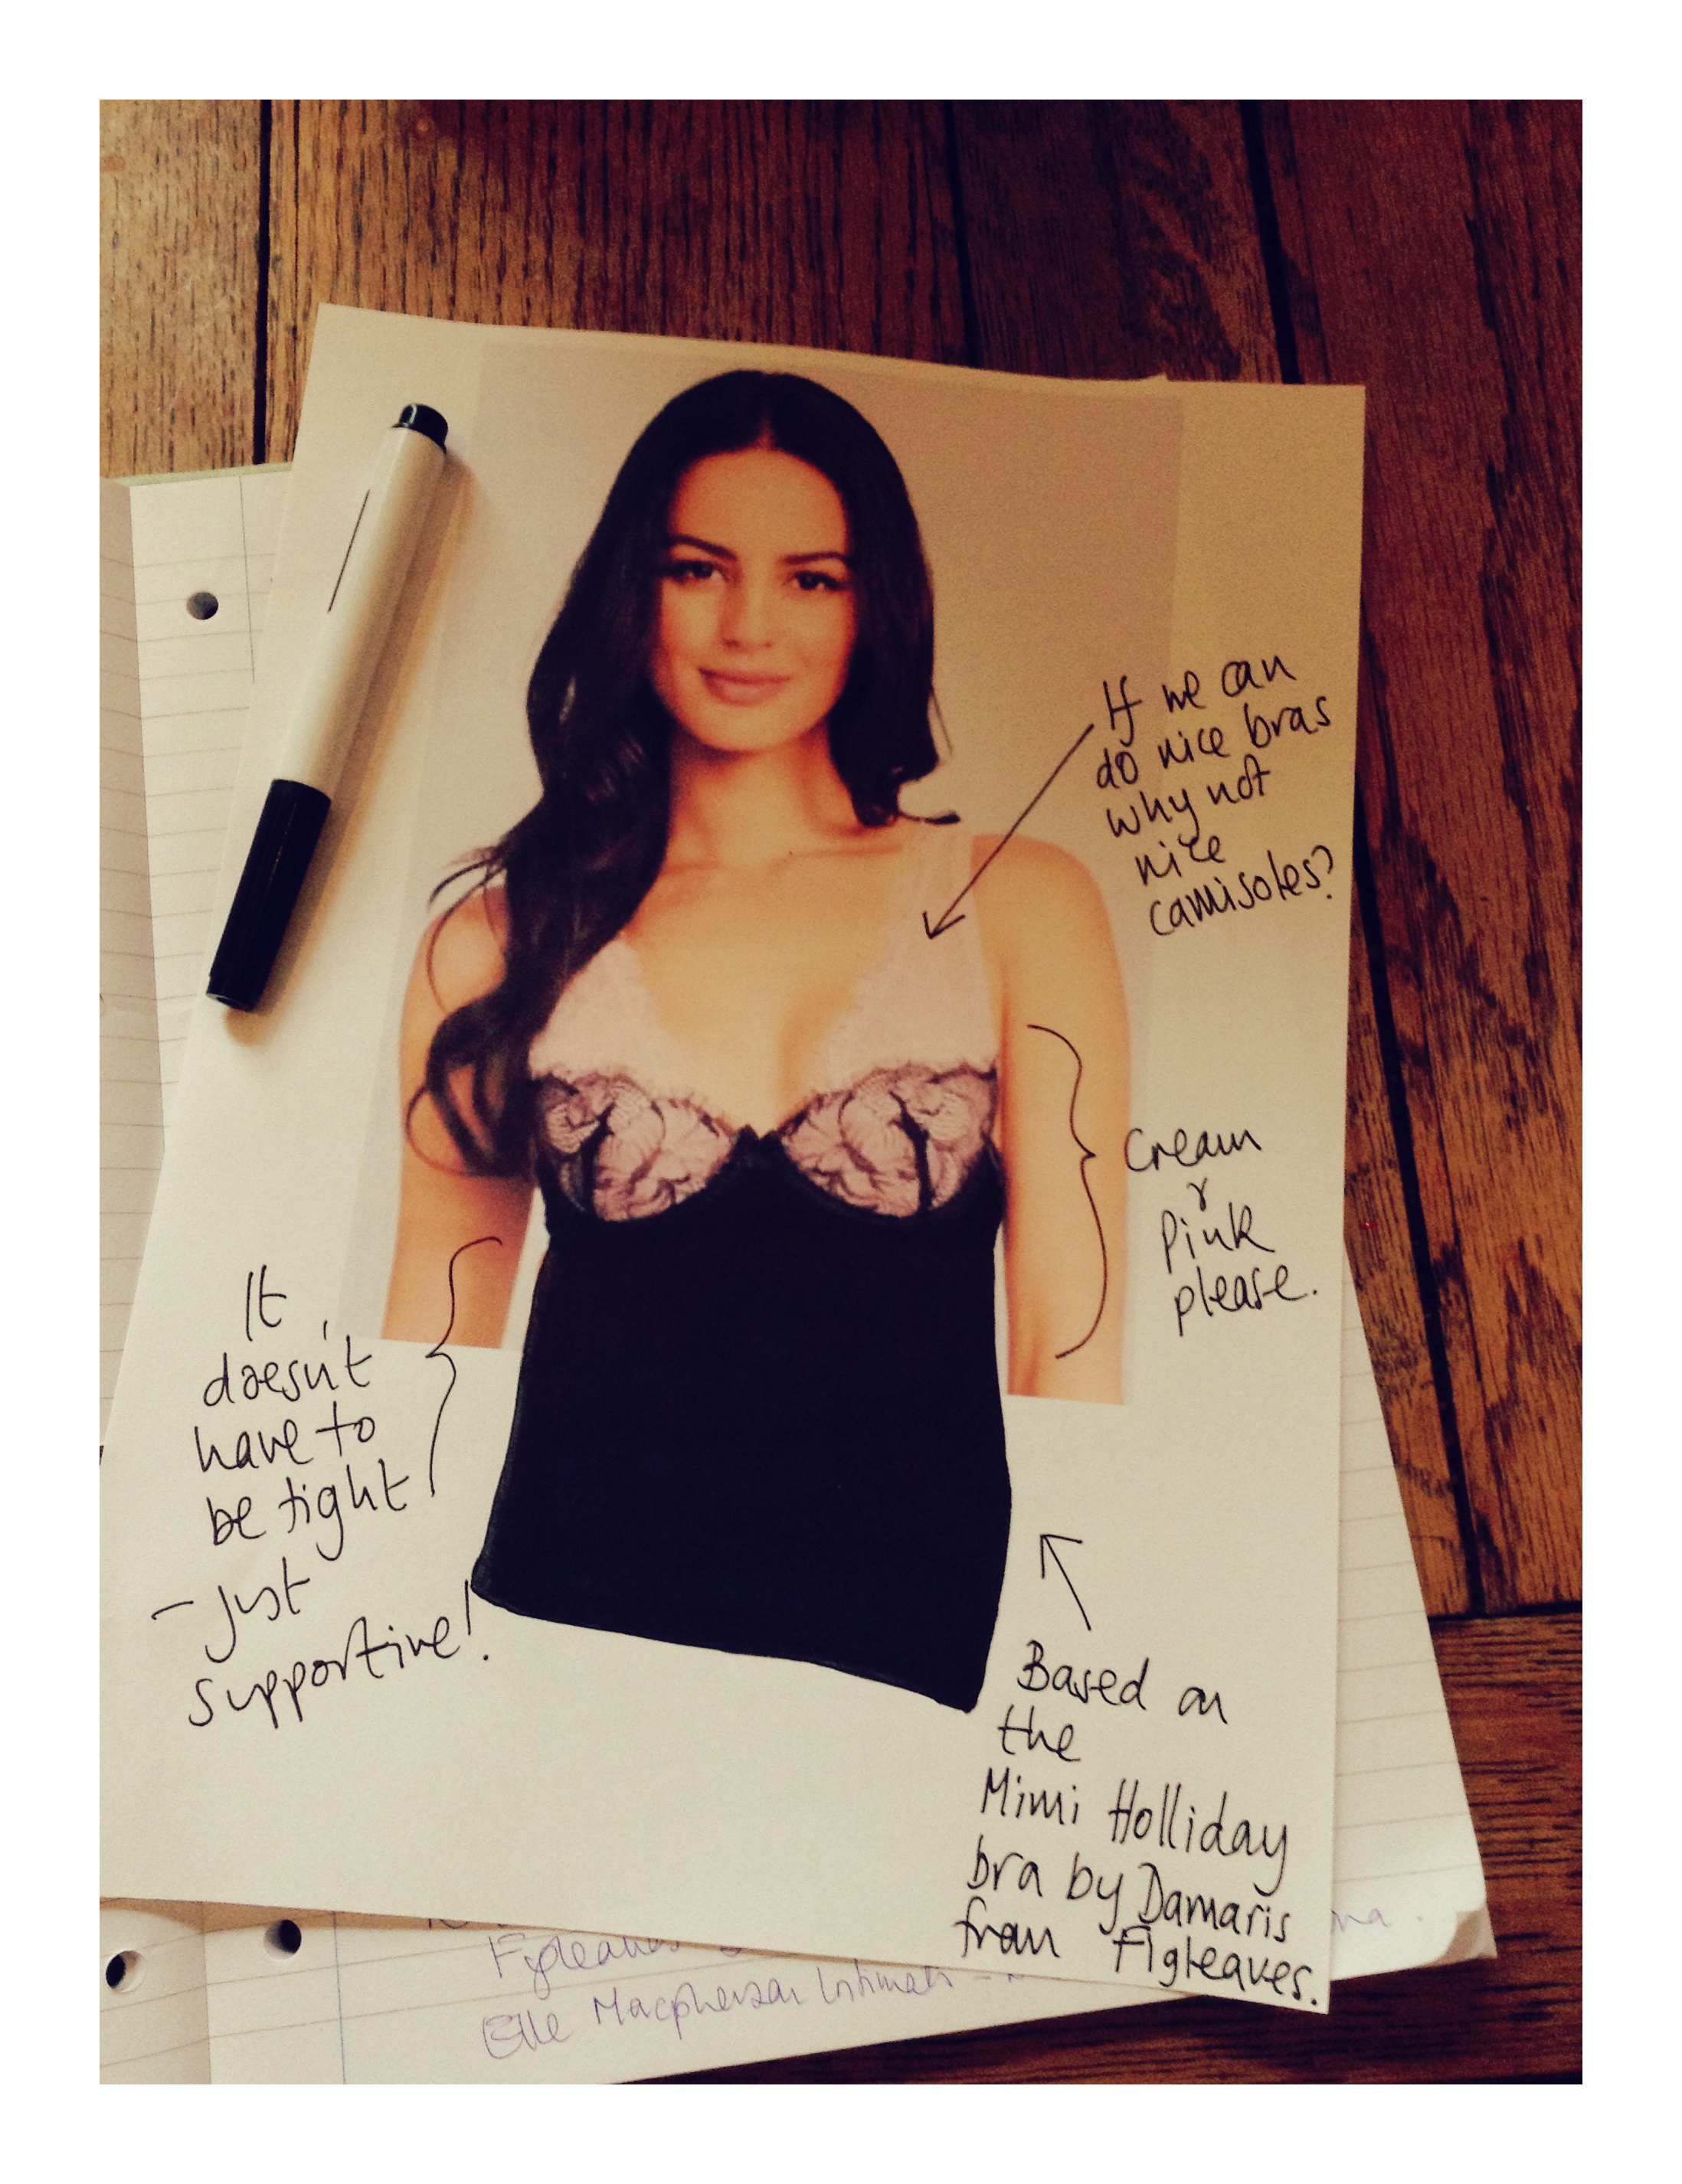 If we can
do nice bras
why not
nice
camisoles?
Cream
&
Pink
please.
It
doesn't
have to
be tight
- Just
supportive!
Based on
the
Mimi Holliday
bra by Damaris
from Figleaves.
Figleaves
Elle Macpherson Intimates -